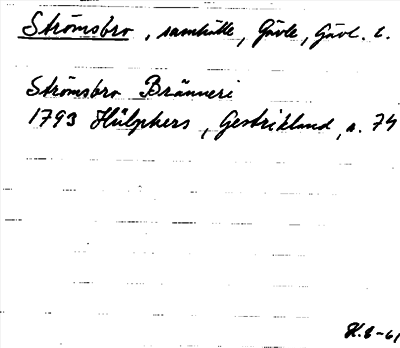 Strömsbro, samhälle, Gävle, Gävl. l.
Strömsbro Bränneri
1793 Hülphers, Gestrikland, s. 74
H.E-61